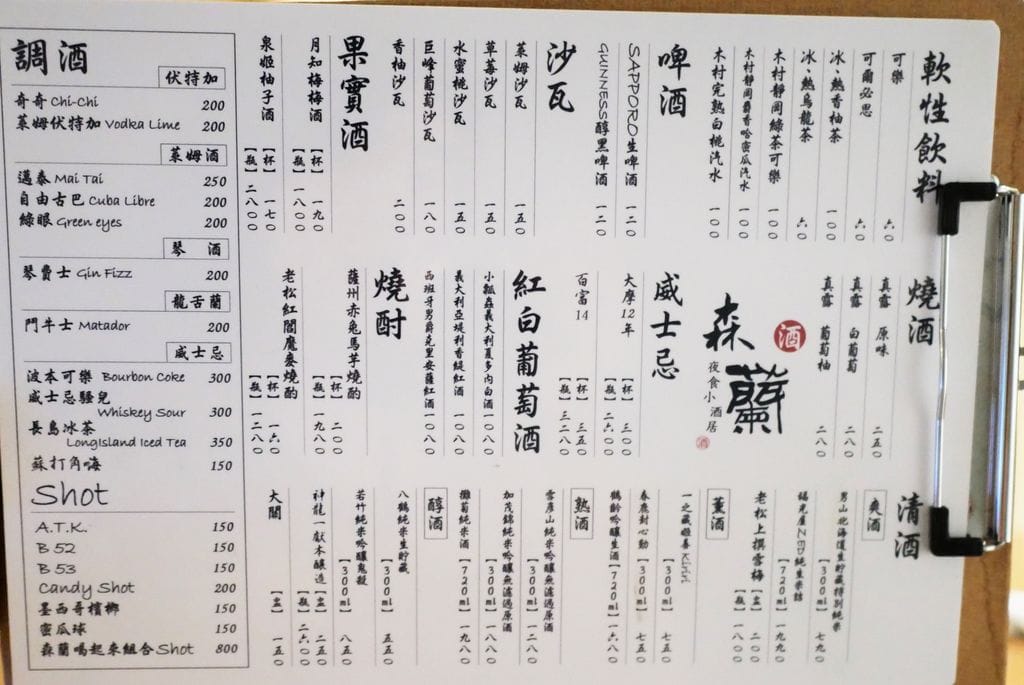 軟性飲料
可樂 六〇
可爾必思 六〇
冰、熱香柚茶 一〇〇
冰、熱烏龍茶 六〇
木村靜岡綠茶可樂 一〇〇
木村靜岡麝香哈密瓜汽水 一〇〇
木村完熟白桃汽水 一〇〇
啤酒
SAPPORO生啤酒 一二〇
GUINNESS醇黑啤酒 一二〇
沙瓦
萊姆沙瓦 一五〇
草莓沙瓦 一五〇
水蜜桃沙瓦 一五〇
巨峰葡萄沙瓦 一八〇
香柚沙瓦 二〇〇
果實酒
月知梅梅酒 【杯】一九〇
【瓶】一八〇〇
泉姬柚子酒 【杯】一七〇
【瓶】二八〇〇
燒酒
真露 原味 二五〇
真露 白葡萄 二八〇
真露 葡萄柚 二八〇
森蘭
酒
夜食小酒居
威士忌
大摩12年 【杯】三〇〇
【瓶】二六〇〇
百富14 【杯】三五〇
【瓶】三二〇〇
紅白葡萄酒
小瓢蟲義大利夏多內白酒 一〇八〇
義大利亞堤利香緹紅酒 一〇八〇
西班牙男爵克里安薩紅酒 一〇八〇
燒酎
薩州赤兔馬芋燒酌 【杯】二〇〇
【瓶】一九八〇
老松紅閻魔麥燒酌 【杯】一六〇
【瓶】一二八〇
清酒
爽酒
男山北海道生貯藏特別純米
【300ml】七九〇
【720ml】一九九〇
老松上撰雪梅 【盅】二〇〇
【瓶】一八〇〇
薰酒
一之藏姬善Kiriri
【300ml】七五〇
春鹿封心動 【300ml】七五〇
鶴齡吟釀生酒【720ml】一六八〇
熟酒
雪彥山純米吟釀無濾過原酒
【300ml】一二八〇
加茂錦純米吟釀無濾過原酒
【720ml】一九八〇
攤萄純米酒 【720ml】一九八〇
醇酒
八鶴純米生貯藏
【300ml】五五〇
若竹純米吟釀鬼殺
【300ml】八五〇
神龍一獻本釀造【盅】二五〇
【瓶】二六〇〇
大關 【盅】一五〇
調酒
伏特加
奇奇 Chi-Chi 200
萊姆伏特加 Vodka Lime 200
萊姆酒
邁泰 Mai Tai 250
自由古巴 Cuba Libre 200
綠眼 Green eyes 200
琴 酒
琴費士 Gin Fizz 200
龍舌蘭
鬥牛士 Matador 200
威士忌
波本可樂 Bourbon Coke 300
威士忌騷兒
Whiskey Sour 300
長島冰茶
LongIsland Iced Tea 350
蘇打角嗨 150
Shot
A.T.K. 150
B 52 150
B 53 150
Candy Shot 200
墨西哥檳榔 150
蜜瓜球 150
森蘭喝起來組合Shot 800